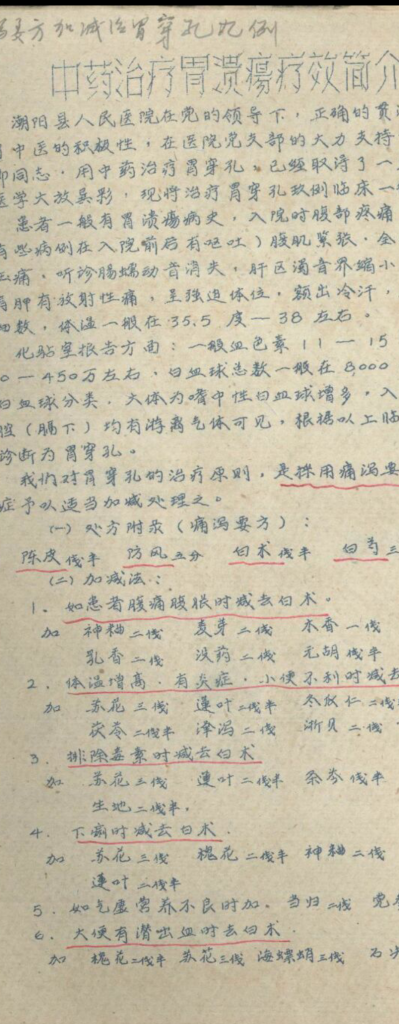 泻要方加减治胃穿孔九例
中药治疗胃溃瘍疗效简介
潮阳县人民医院在党的领导下，正确的贯
中医的积极性，在医院党支部的大力支持
同志，用中药治疗胃穿孔，已经取得了一
医学大放异彩，现将治疗胃穿孔玖例临床一
患者一般有胃溃瘍病史，入院时腹部疼痛
有些病例在入院前后有呕吐）腹肌紧张，全
压痛，听诊腸蠕动音消失，肝区濁音界缩小
肩胛有放射性痛，呈强迫体位，额出冷汗，
细数，体温一般在35.5 度—38 左右。
化验室报告方面：一般血色素 11 — 15
0 — 450万左右，白血球总数一般在 8000
白血球分类，大体为嗜中性白血球增多，入
腔（膈下）均有游离气体可见，根据以上临
诊断为胃穿孔。
我们对胃穿孔的治疗原则，是採用痛泻要
症予以适当加减处理之。
(一) 处方附录（痛泻要方）：
陈皮 伐半 防风 五分 白术 伐半 白芍 三
(二) 加减法：
1. 如患者腹痛腹胀时减去白术。
加 神粬 二伐 麦芽 二伐 木香 一伐
乳香 二伐 没药 二伐 元胡 伐半
2. 体温增高，有炎症，小便不利时减去
加 苏花 三伐 莲叶 二伐半 冬瓜仁 二伐
茯苓 二伐半 泽泻 二伐 浙贝 二伐
3. 排除毒素时减去白术
加 苏花 三伐 莲叶 二伐半 条芩 伐半
生地 二伐半，
4. 下痢时减去白术．
加 苏花 三伐 槐花 二伐半 神粬 二伐
莲叶 二伐半
5. 如气虚营养不良时加．当归 二伐 党
6. 大便有潜出血时去白术．
加 槐花 二伐半 苏花 三伐 海螵蛸 三伐